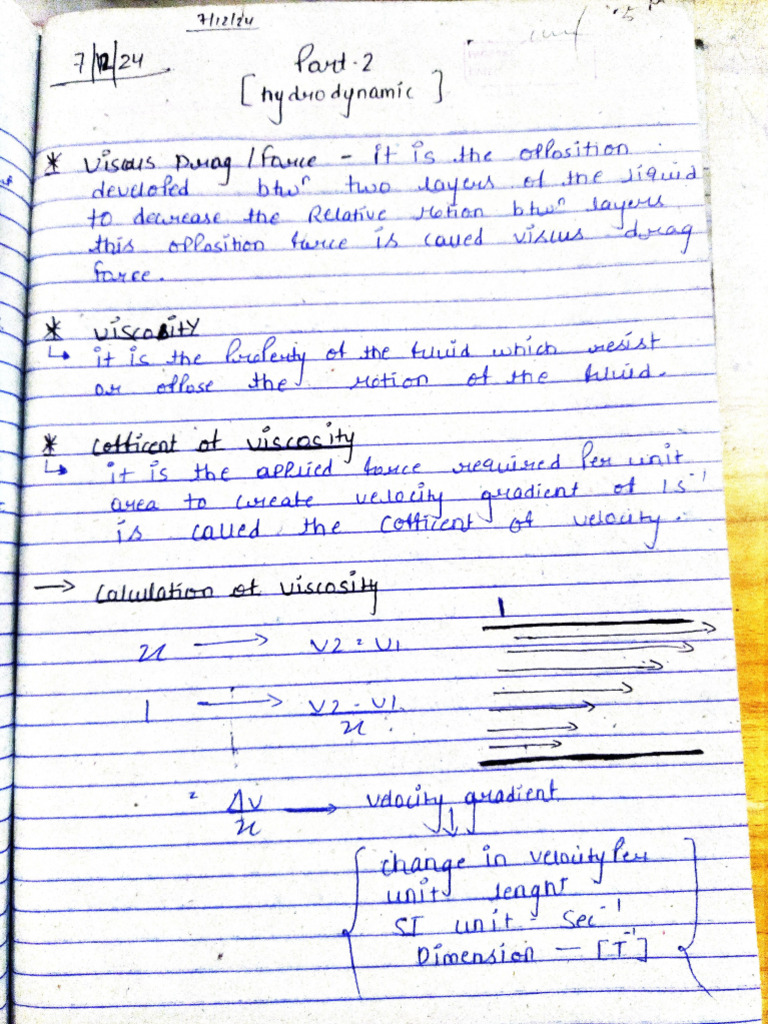 7/12/24
7/12/24
Part-2
[hydrodynamic]
* Viscous Drag / Force - it is the opposition
developed btwn two layers of the liquid
to decrease the Relative Motion btwn layers
this opposition force is called viscus drag
force.
* Viscosity
↳ it is the Property of the fluid which resist
or oppose the Motion of the fluid.
* Cofficent of viscosity
↳ it is the applied force required Per unit
area to create velocity gradient of 1s⁻¹
is called the Cofficent of velocity.
→ Calculation of Viscosity
x → V2 - V1
1 → V2 - V1
x
= Δv → Velocity gradient
x
change in velocity Per
unit lenght
SI unit - Sec⁻¹
Dimension — [T⁻¹]